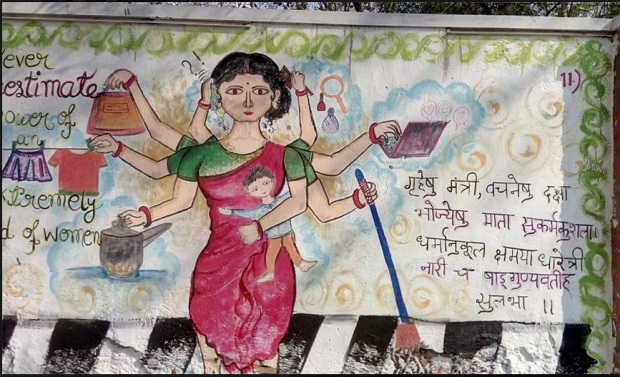 ever
restimate
ower of
an
xtremely
d of women
11)
गृहेषु मंत्री, वचनेषु दक्षा
भोज्येषु माता सुकर्मकुशला।
धर्मानुकूल क्षमया धारेत्री
नारी च षाड्गुण्यवतीह
सुलभा ॥